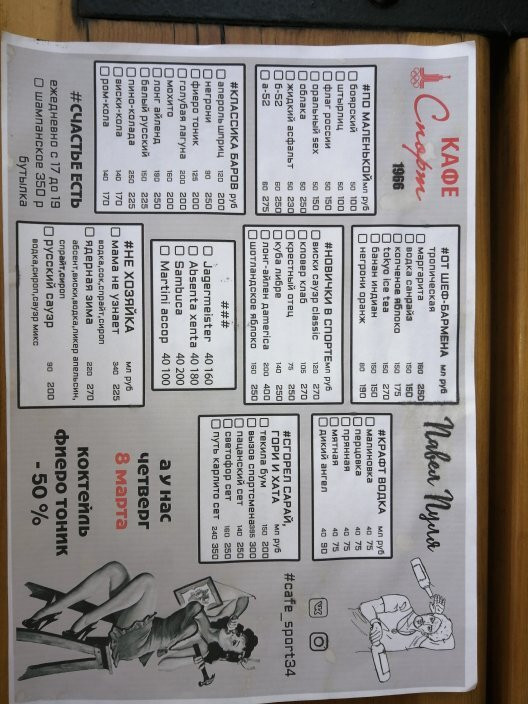 КАФЕ
Спорт
1966
#ПО МАЛЕНЬКОЙ мл руб
боярский 50 100
штырлиц 50 100
флаг россии 50 150
оральный sex 50 150
облака 50 250
жидкий асфальт 50 230
б-52 60 250
а-52 60 275
#КЛАССИКА БАРОВ руб
апероль шприц 120 200
негрони 90 250
фиеро тоник 125 200
голубая лагуна 90 200
мохито 160 200
лонг айленд 180 250
белый русский 150 225
пино-колада 250 225
виски-кола 140 170
ром-кола 140 170
#СЧАСТЬЕ ЕСТЬ
ежедневно с 17 до 19
шампанское 350 р
бутылка
#ОТ ШЕФ-БАРМЕНА мл руб
тропическая
маргарита 160 250
водка санрайз 150 150
копченое яблоко 150 175
tokyo ice tea 150 270
банан индиан 150 150
негрони оранж 80 190
#НОВИЧКИ В СПОРТЕ мл руб
виски сауэр classic 120 270
кловер клаб 105 270
крестный отец 75 250
куба либре 140 250
лонг-айлен america 200 400
шотландское яблоко 160 250
###
Jagermeister 40 160
Absenta xenta 40 180
Sambuca 40 200
Martini ассор 40 100
#НЕ ХОЗЯЙКА мл руб
мама не узнает 340 225
водка,сок,спрайт,сироп
ядерная зима 220 270
абсент,виски,водка,ликер апельсин,
спрайт,сироп
русский сауэр 90 200
водка,сироп,сауэр микс
Павел Пуля
#КРАФТ ВОДКА мл руб
малиновка 40 75
перцовка 40 75
пряная 40 75
мятная 40 75
дикий ангел 40 90
#СГОРЕЛ САРАЙ,
ГОРИ И ХАТА мл руб
текила бум 150 200
вызов спортсмена 395 300
пацанский сет 240 250
светофор сет 160 250
путь карлито сет 240 350
а у нас
четверг
8 марта
коктейль
фиеро тоник
- 50 %
#cafe_sport34